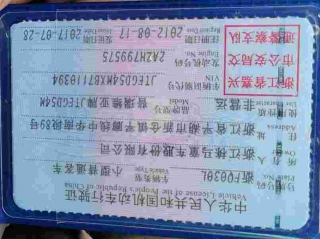 中华人民共和国机动车行驶证
Vehicle License of the People's Republic of China
号牌号码 车辆类型 小型普通客车
Plate No. Vehicle Type
所有人 浙江 车业股份有限公司
Owner
住址 浙江省平湖市新仓镇 中路89号
Address
使用性质 非营运 品牌型号 普瑞维亚牌JTEGD54M
Use Character Model
浙江省嘉兴
市公安局交
通警察支队
车辆识别代号
VIN
发动机号码 2AZH799575
Engine No.
注册日期 2012-08-17 发证日期 2017-07-28
Register Date Issue Date